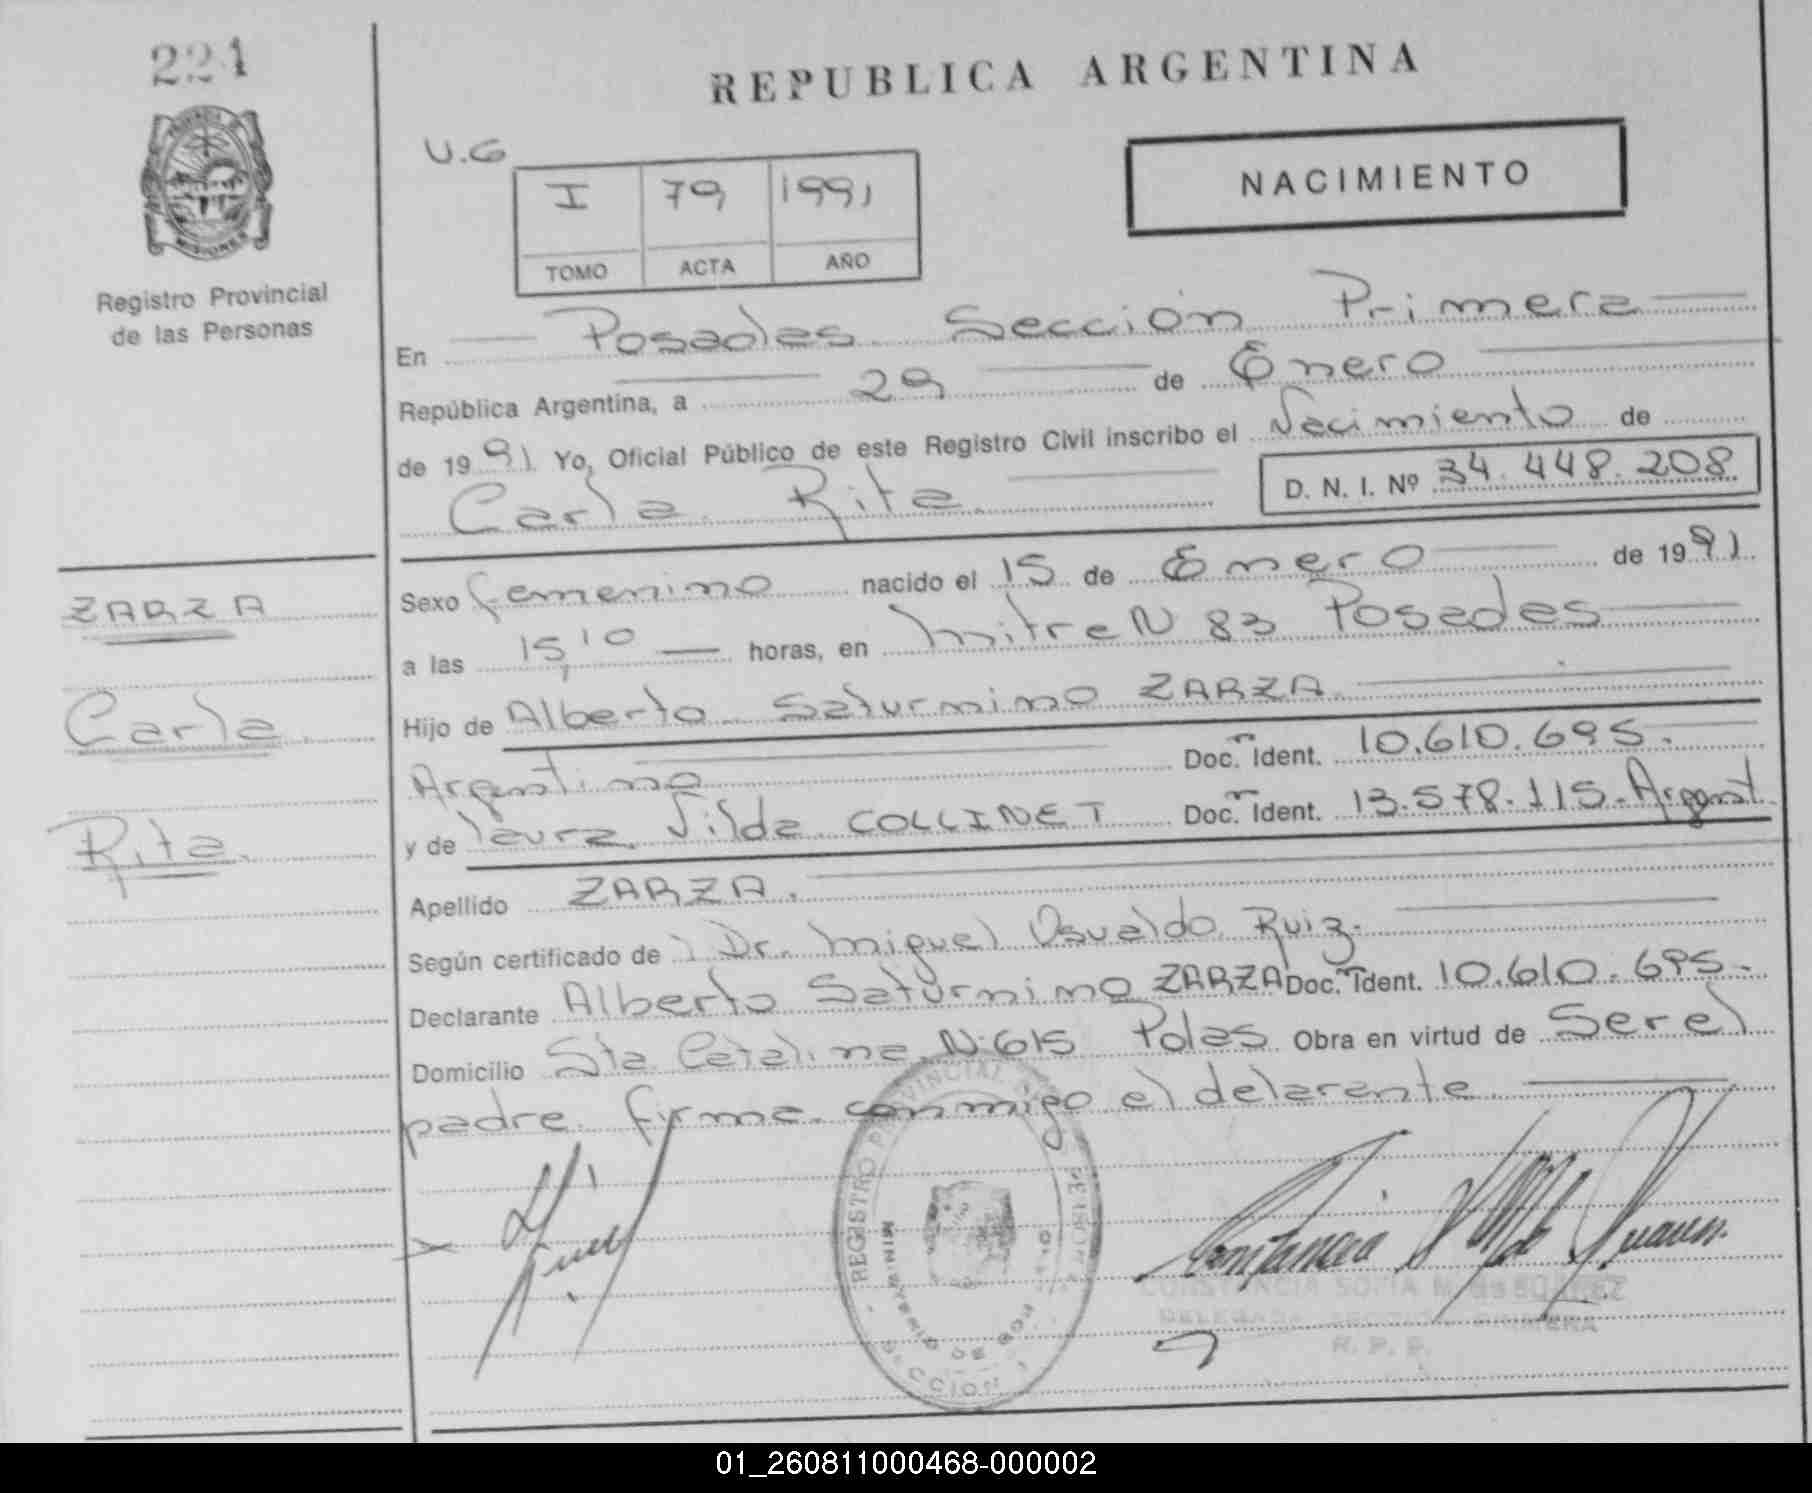 221
REPUBLICA ARGENTINA
U.G
I 79 1991
TOMO ACTA AÑO
NACIMIENTO
MISIONES
Registro Provincial
de las Personas
En Posadas Sección Primera
República Argentina, a 29 de Enero
de 1991 Yo, Oficial Público de este Registro Civil inscribo el Nacimiento de
Carla Rita D. N. I. Nº 34.448.208
ZARZA
Carla
Rita
Sexo femenino nacido el 15 de Enero de 1991
a las 15,10 horas, en Mitre N 83 Posadas
Hijo de Alberto Saturnino ZARZA
Argentino Doc. Ident. 10.610.695.
y de laura Nilda COLLINET Doc. Ident. 13.578.115. Argent.
Apellido ZARZA.
Según certificado de Dr. Miguel Osvaldo Ruiz.
Declarante Alberto Saturnino ZARZA Doc. Ident. 10.610.695.
Domicilio Sta Catalina N:615 Pdas Obra en virtud de Ser el
padre firma conmigo el delarante
REGISTRO PROVINCIAL
MINISTERIO DE GOB
SECCION
CONSTANCIA SOFIA M. de SUAREZ
DELEGADA SECCION PRIMERA
R. P. P.
01_260811000468-000002